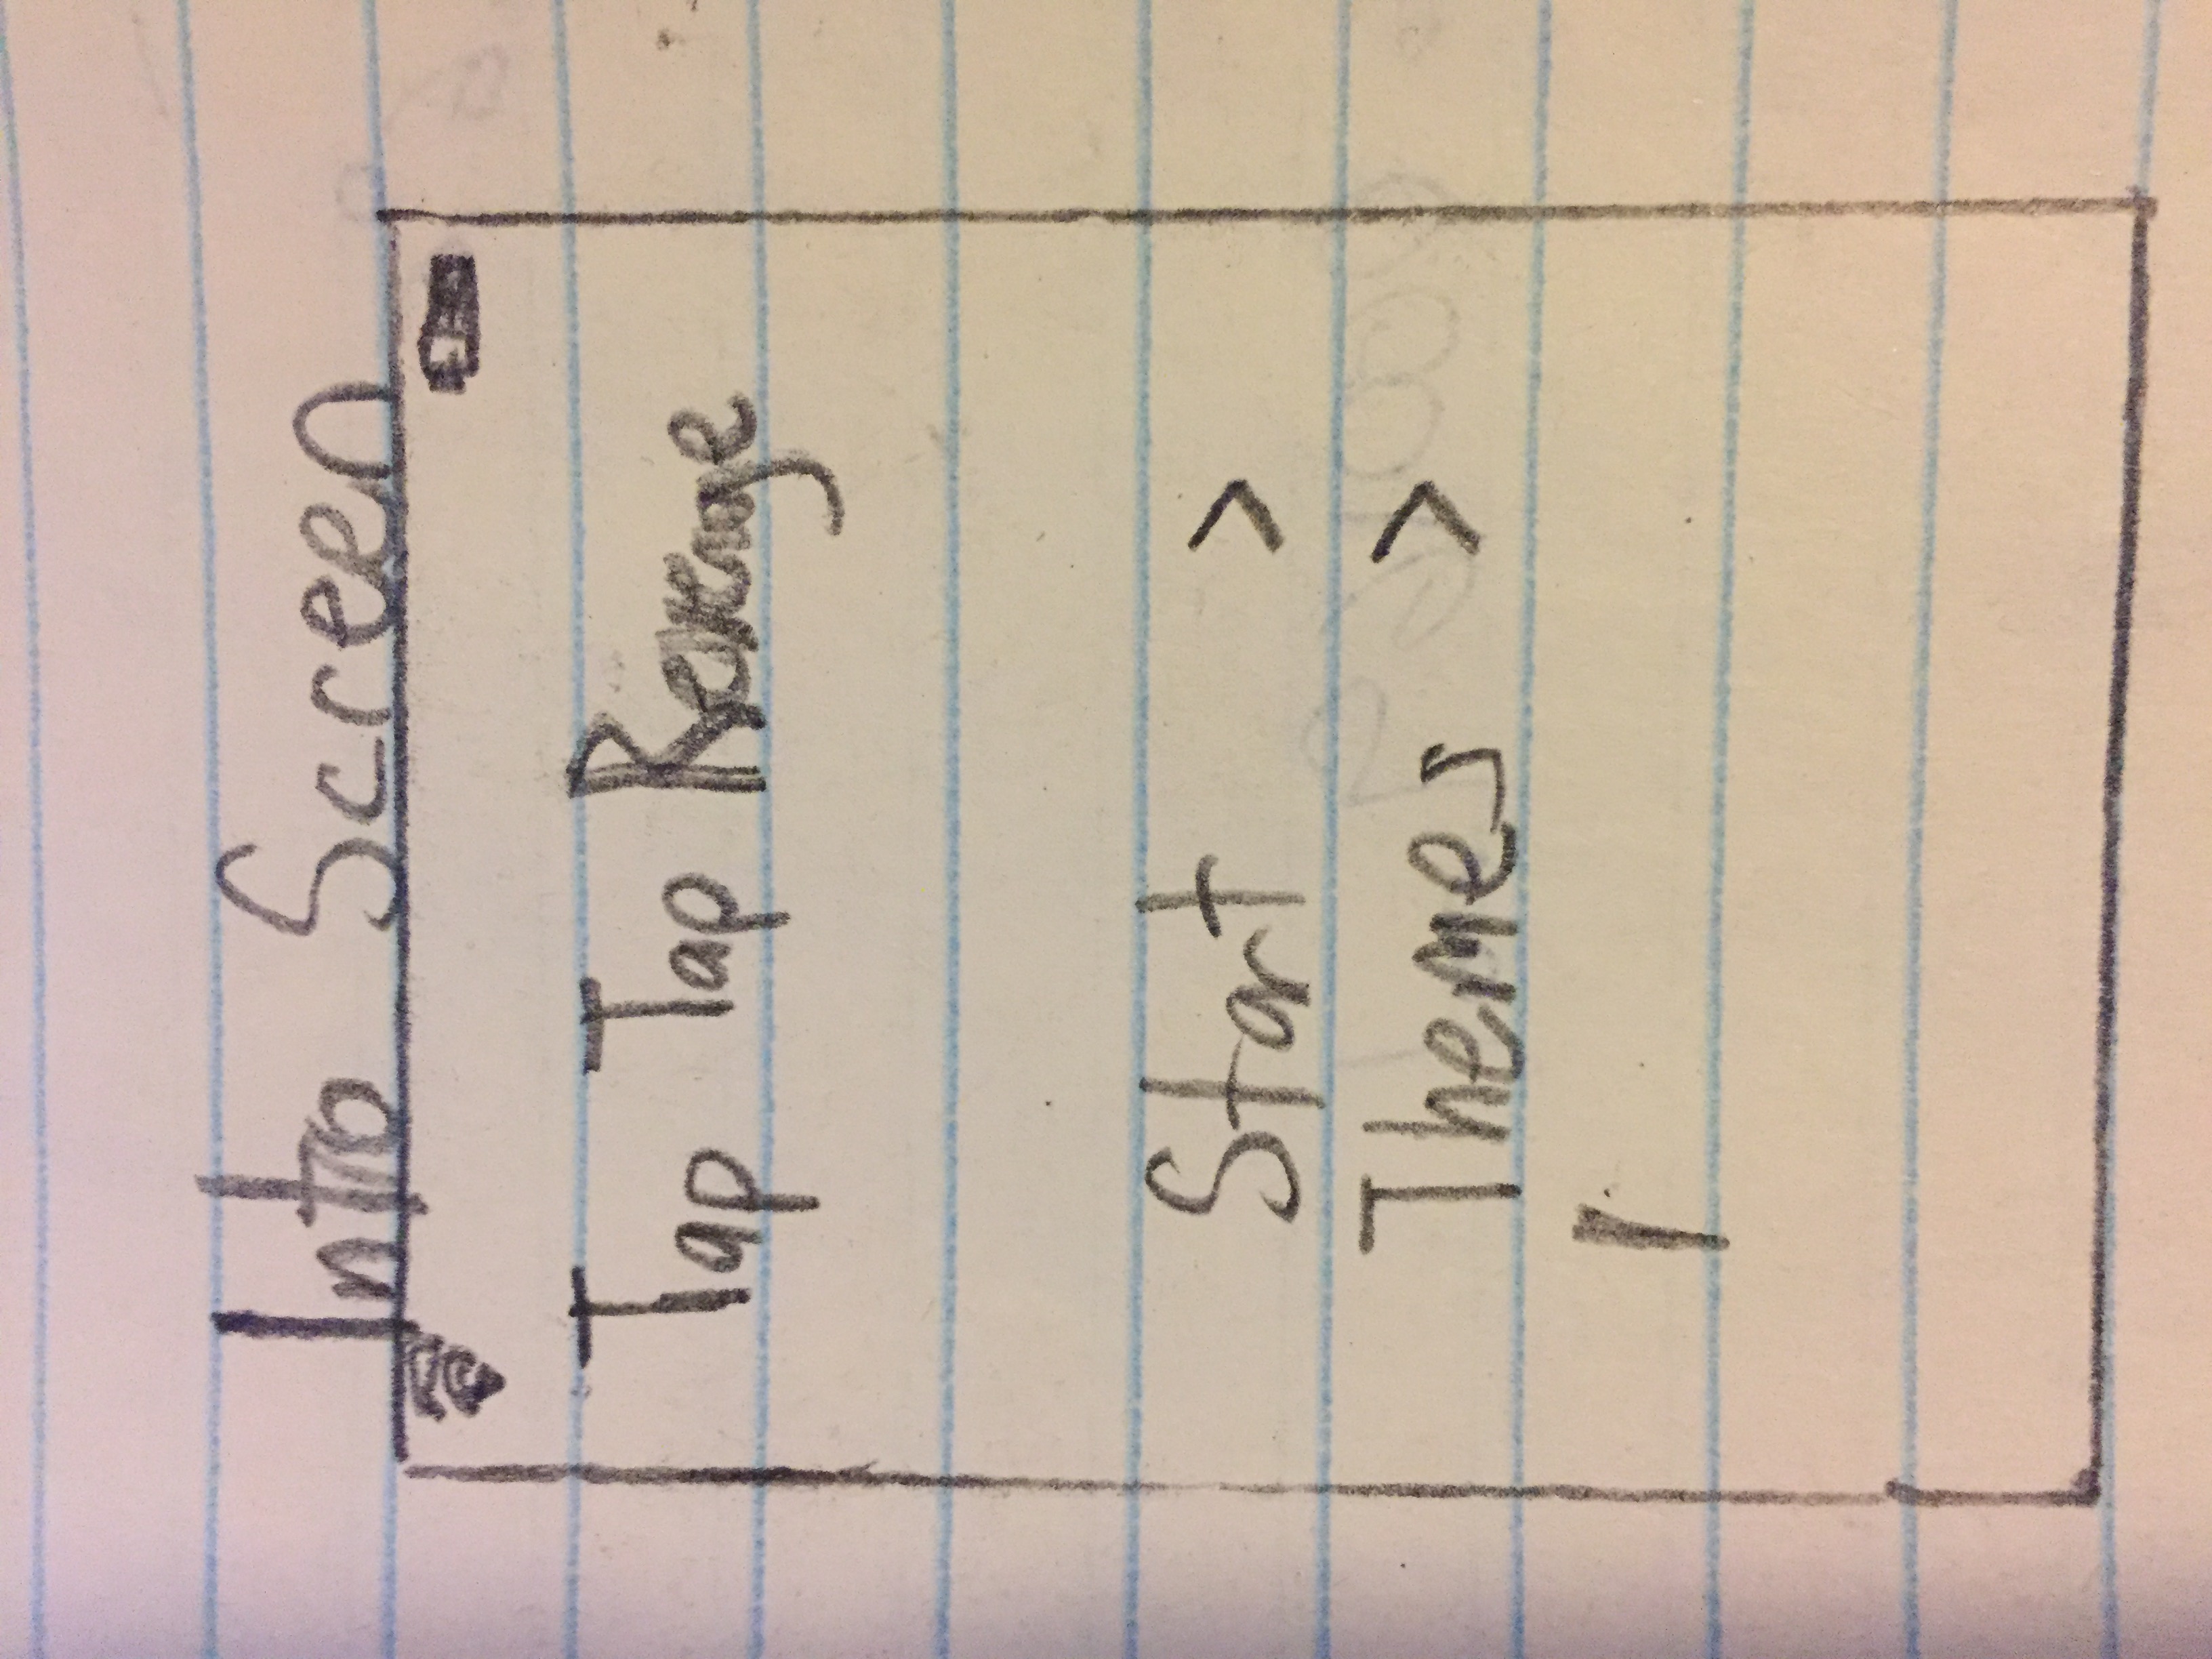 Intro Screen
Tap Tap Revenge
Start >
Themes >